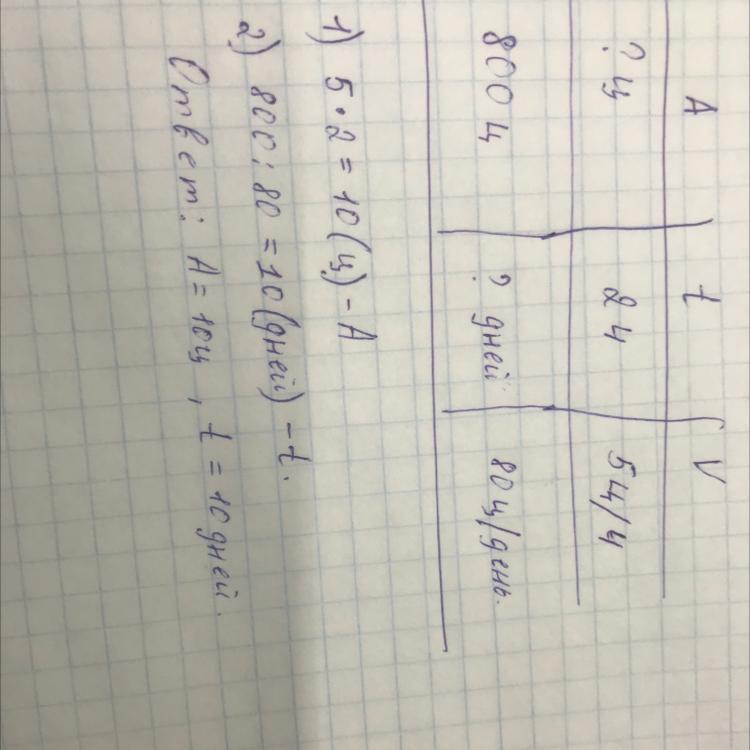 A t V
? ц 2 ч 5 ц/ч
800 ц ? дней 80 ц/день.
1) 5 · 2 = 10 (ц) - А
2) 800 : 80 = 10 (дней) - t.
Ответ: А = 10ц , t = 10 дней.